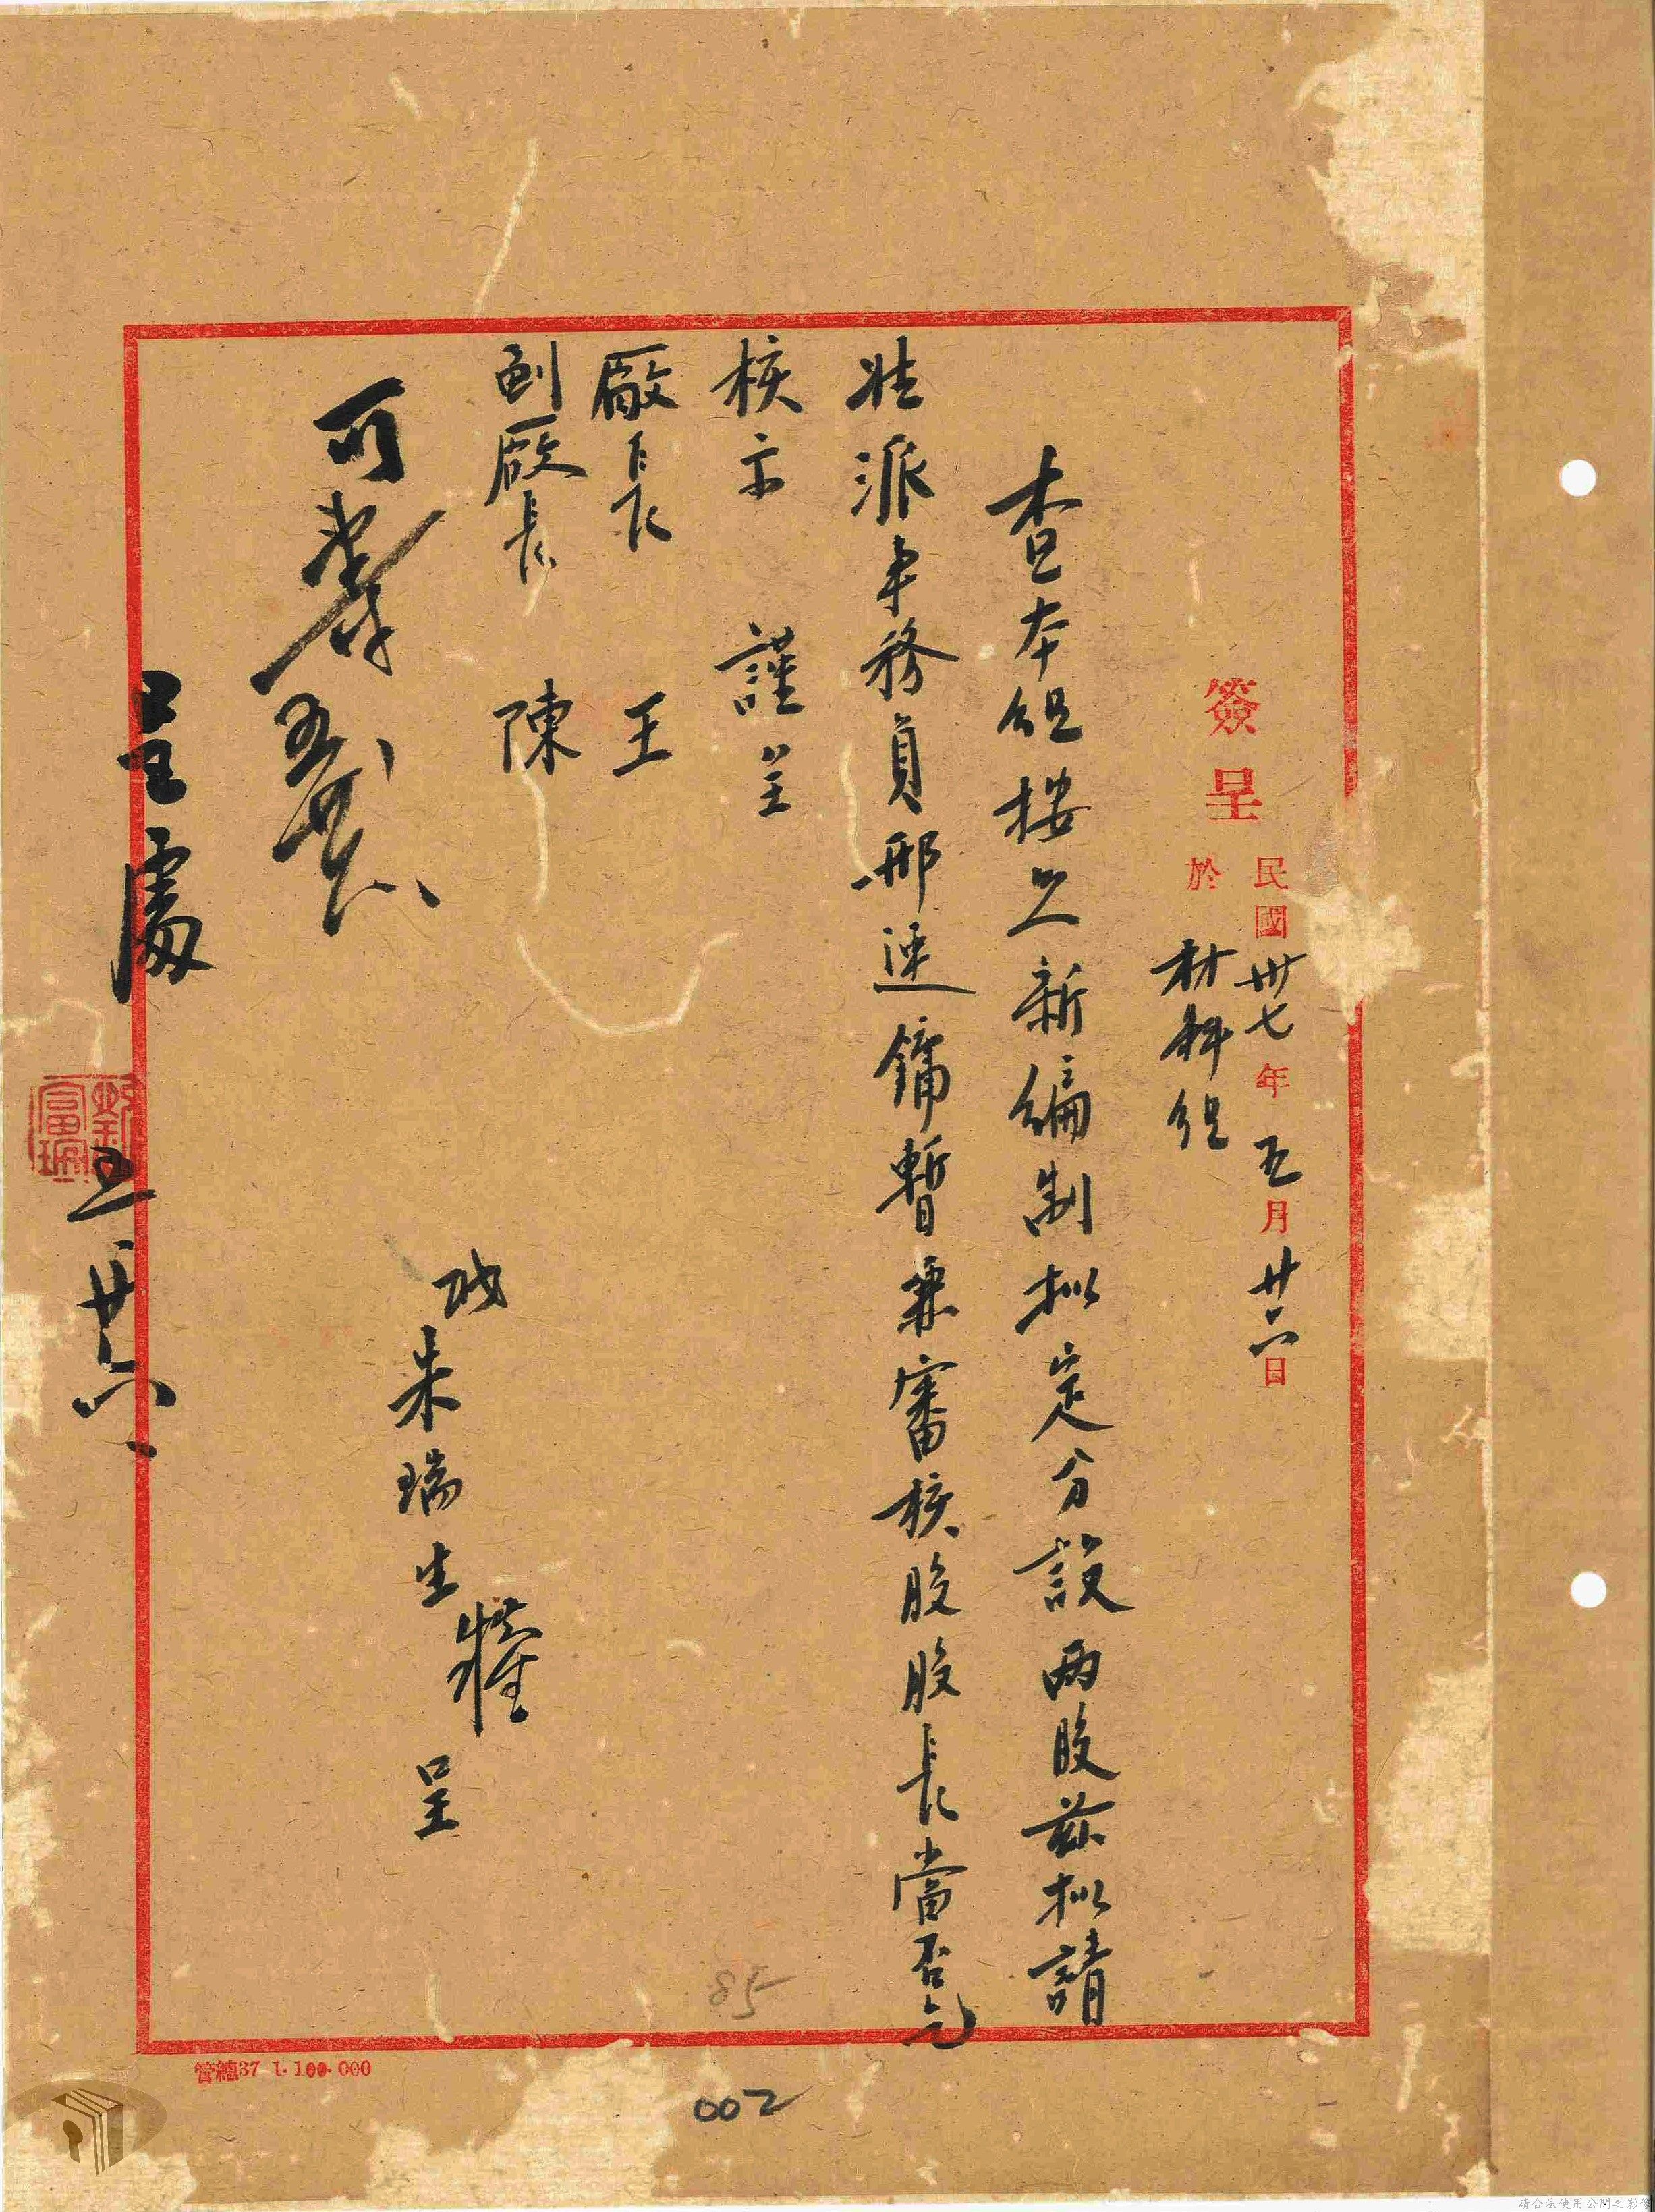 簽呈
民國卅七年五月廿六日
於材料組
查本組按工新編制擬定分設兩股茲擬請
准派事務員邢連鏞暫兼審核股股長當否乞
核示 謹呈
廠長 王
副廠長 陳
職朱瑞生 呈
可
呈處
五 廿六
管總37 1.100.000
85
002
請合法使用公開之影像